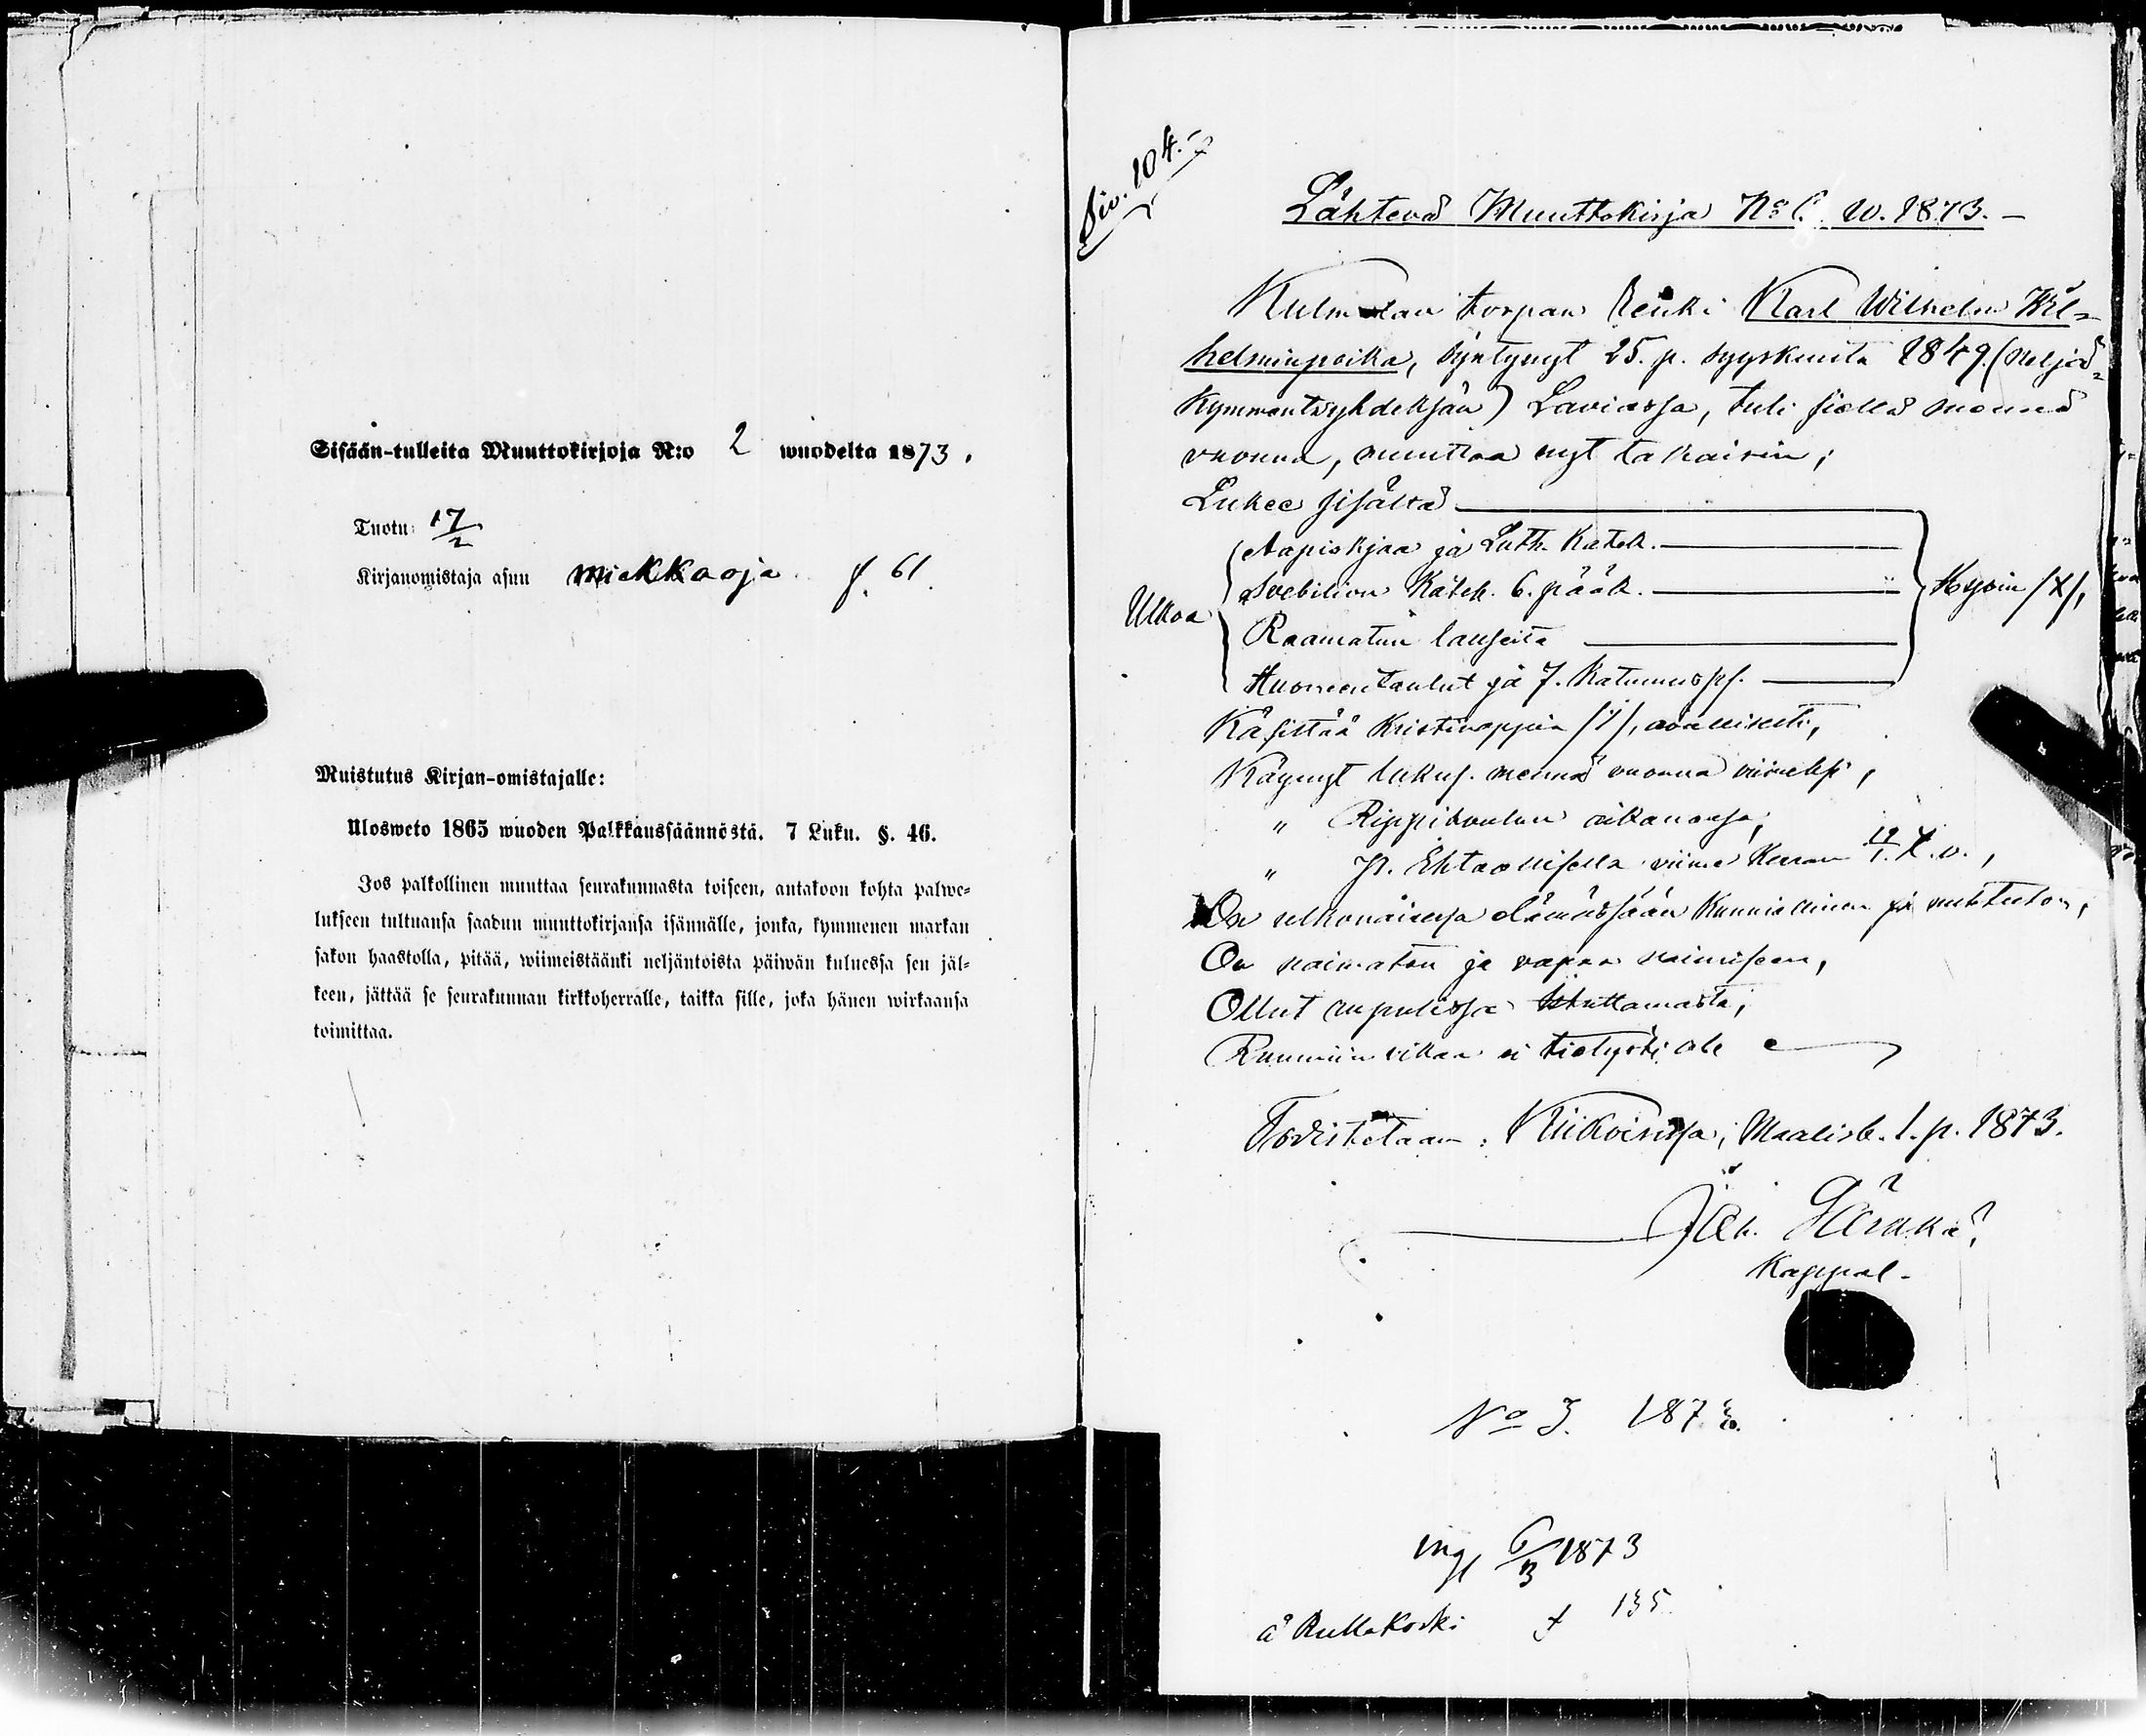 Sisään-tulleita Muuttokirjoja N:o 2 wuodelta 1873.
Tuotu 17/2
Kirjanomistaja asuu Miekkaoja f. 61.
Muistutus Kirjan-omistajalle:
Ulosweto 1865 wuoden Palkkaussäännöstä. 7 Luku. §. 46.
Jos palkollinen muuttaa seurakunnasta toiseen, antakoon kohta palwe-
lukseen tultuansa saadun muuttokirjansa isännälle, jonka, kymmenen markan
sakon haastolla, pitää, wiimeistäänki neljäntoista päiwän kuluessa sen jäl-
keen, jättää se seurakunnan kirkkoherralle, taikka sille, joka hänen wirkaansa
toimittaa.
Siv. 104.
Lähtevä Muuttokirja No 6. w. 1873. —
torpan Renki Karl Wilhelm Wil-
helminpoika, syntynyt 25. p. syyskuuta 1849. (neljä-
kymmentäyhdeksän) Laviassa, tuli sieltä mennä
vuonna, muuttaa nyt takaisin;
Lukee sisältä
Aapiskjaa ja Luth. Katek.
Svebilion Katek. 6. pääk.
Hyvin /X/,
Ulkoa
Raamatun lauseita
Huoneentaulut ja 7. Katumusps.
Käsittää Kristinoppia /y/, avullisesti,
Käynyt lukus. mennä vuonna viimeksi,
" Rippikoulun aikanansa,
" H. Ehtoollisella viime kerran
On ulkonaisessa elämässään kunniallinen ja nuhteeton,
On naimaton ja vapaa naimiseen,
Ollut rupulissa
Ruumiin vikaa ei tietysti ole
Todistetaan: Kiikoisissa, Maalisk. 1. p. 1873.
Kappal.
No 3. 1873.
ing. 6/3 1873
å Rullakoski f 135